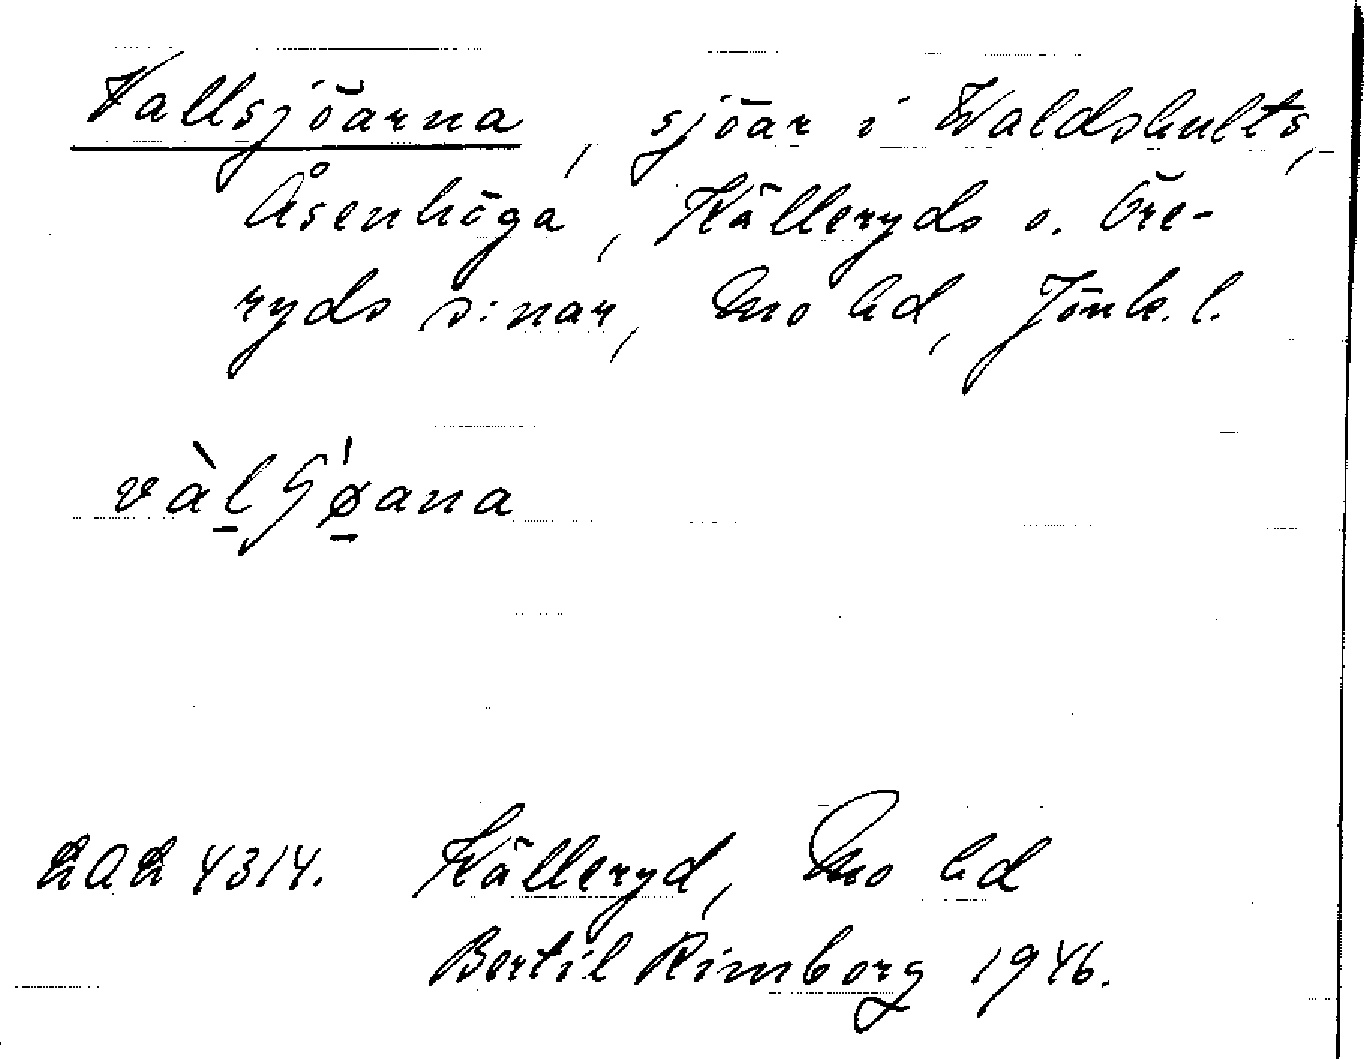 Vallsjöarna, sjöar i Valdshults,
Åsenhöga, Källeryds o. Öre-
ryds s:nar, Mo hd, Jönk. l.
vàlʃø̀ana
4314. Källeryd, Mo hd
Bertil Rimborg 1946.